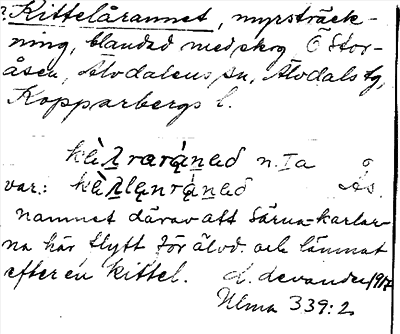 ?. Kittelårannet, myrsträck-
ning, blandad med skog Ö Stor-
åsen, Älvdalens sn, Älvdals tg,
Kopparbergs l.
n. Ia
var.:
namnet därav att Särna-karlar-
na här flytt för älvd. och lämnat
efter en kittel. d. Levander 1917
Ulma 339:2